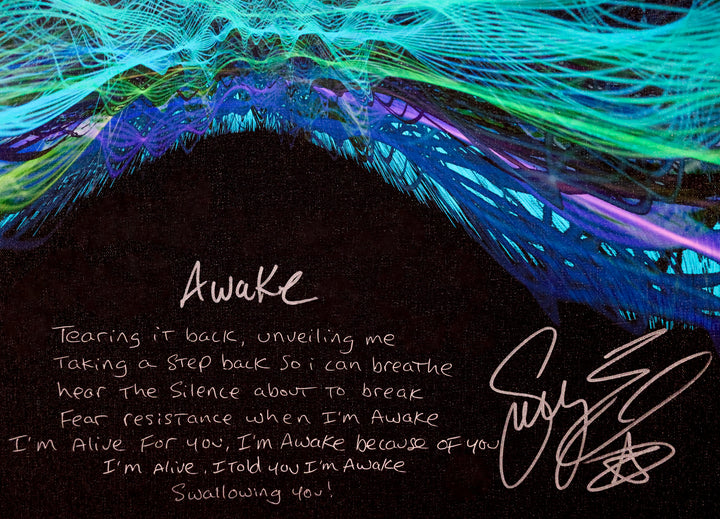 Awake
Tearing it back, unveiling me
Taking a step back so i can breathe
hear the silence about to break
Fear resistance when I'm Awake
I'm Alive For you, I'm Awake because of you
I'm Alive, I told you I'm Awake
Swallowing you!